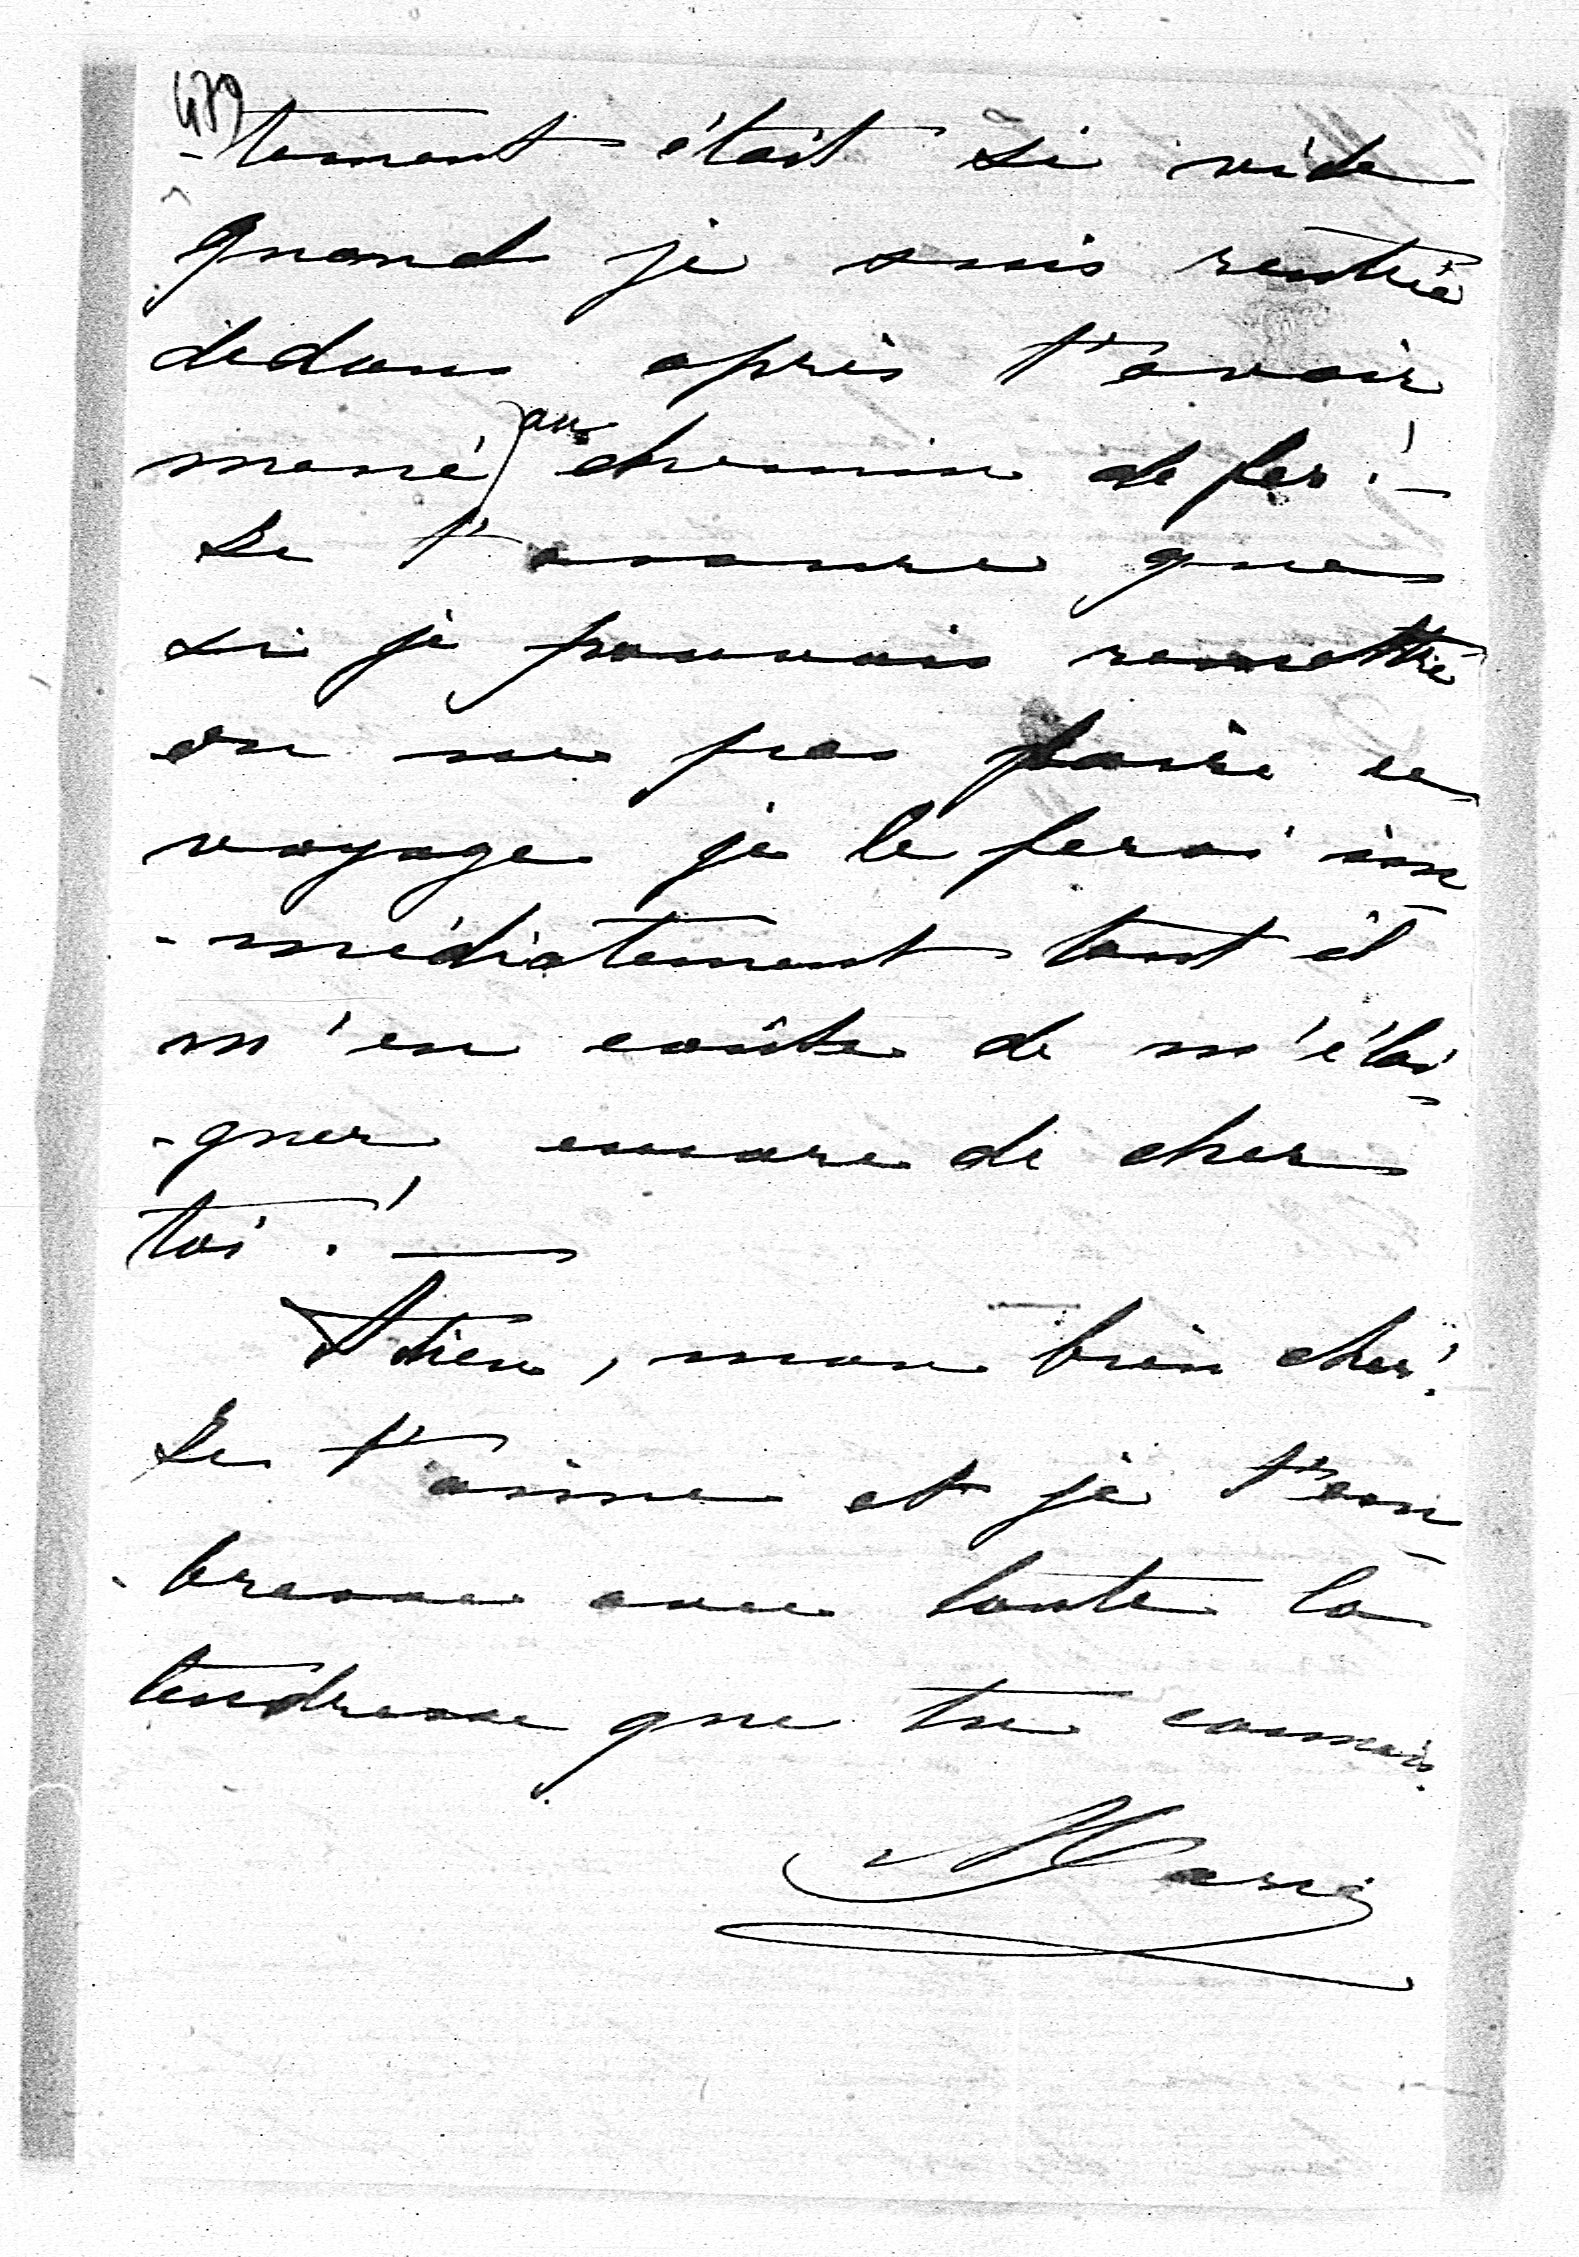 479
-tement était si vide
quand je suis rentrée
dedans après t'avoir
mené au chemin de fer !—
Je t'assure que
si je pouvais remettre
ou ne pas faire ce
voyage je le ferai im-
-médiatement tant il
m'en coûte de m'éloi-
-gner encore de cher
toi ! —
Adieu, mon bien cher !
Je t'aime et je t'em-
-brasse avec toute la
tendresse que tu connais.
Marie